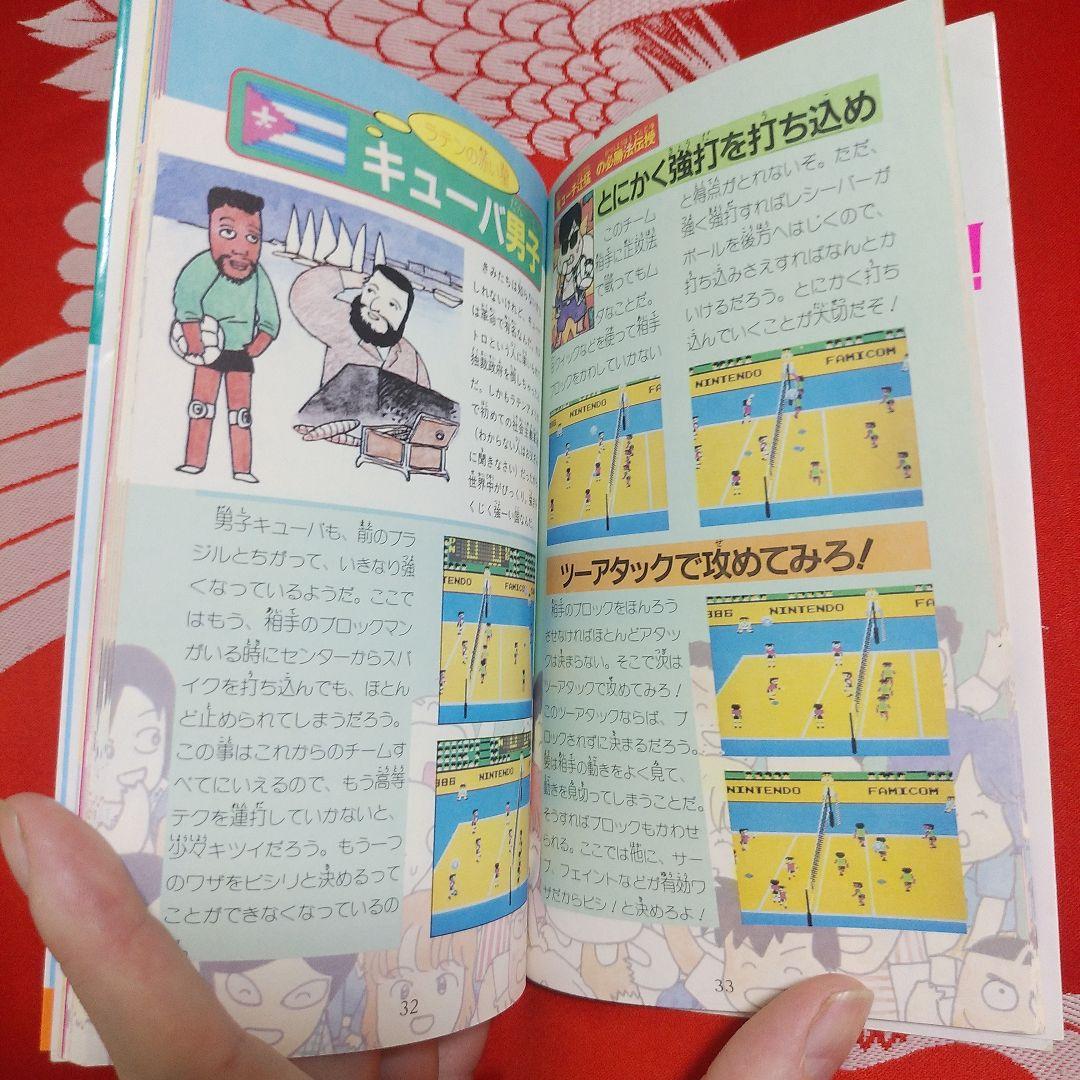 ラテンの赤い星
キューバ男子
きみたちは知らない
しれないけれど、キュー
は革命で有名なんだ。
トロという人
独裁政府を倒しちゃっ
だ。しかもラテンアメ
で初めての社会主義
(わからない人はお父
に聞きなさい)だった
世界中がびっくり。
くじく強一い国なんだ。
男子キューバも、前のブラ
ジルとちがって、いきなり強
くなっているようだ。ここで
はもう、相手のブロックマン
がいる時にセンターからスパ
イクを打ち込んでも、ほとん
ど止められてしまうだろう。
この事はこれからのチームす
べてにいえるので、もう高等
テクを連打していかないと、
少々キツイだろう。もう一つ
のワザをビシリと決めるって
ことができなくなっているの
NINTENDO
FAMICO
986
NINTENDO
32
コーチ辻猛の必勝法伝授
とにかく強打を打ち込め
このチーム
相手に正攻法
で戦ってもム
ダなことだ。
クイックなどを使って相手
ブロックをかわしていかない
と得点がとれないぞ。ただ、
強く強打すればレシーバーが
ボールを後方へはじくので、
打ち込みさえすればなんとか
いけるだろう。とにかく打ち
込んでいくことが大切だぞ!
NINTENDO
FA
NINTENDO
FAMICOM
ツーアタックで攻めてみろ!
相手のブロックをほんろう
させなければほとんどアタッ
クは決まらない。そこで次は
ツーアタックで攻めてみろ!
このツーアタックならば、ブ
ロックされずに決まるだろう。
要は相手の動きをよく見て、
動きを見切ってしまうことだ。
そうすればブロックもかわせ
られる。ここでは他に、サー
ブ、フェイントなどが有効ワ
ザだからビシ!と決めろよ!
986
NINTENDO
FA
NINTENDO
FAMICOM
33
!